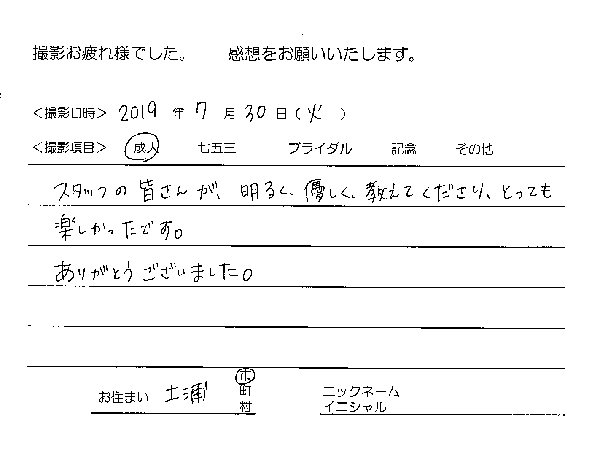 撮影お疲れ様でした。 感想をお願いいたします。
＜撮影日時＞ 2019 年 7 月 30 日（火）
＜撮影項目＞ 成人 七五三 ブライダル 記念 その他
スタッフの皆さんが、明るく、優しく、教えてくださり、とっても
楽しかったです。
ありがとうございました。
お住まい 土浦 市 町 村 ニックネーム
イニシャル